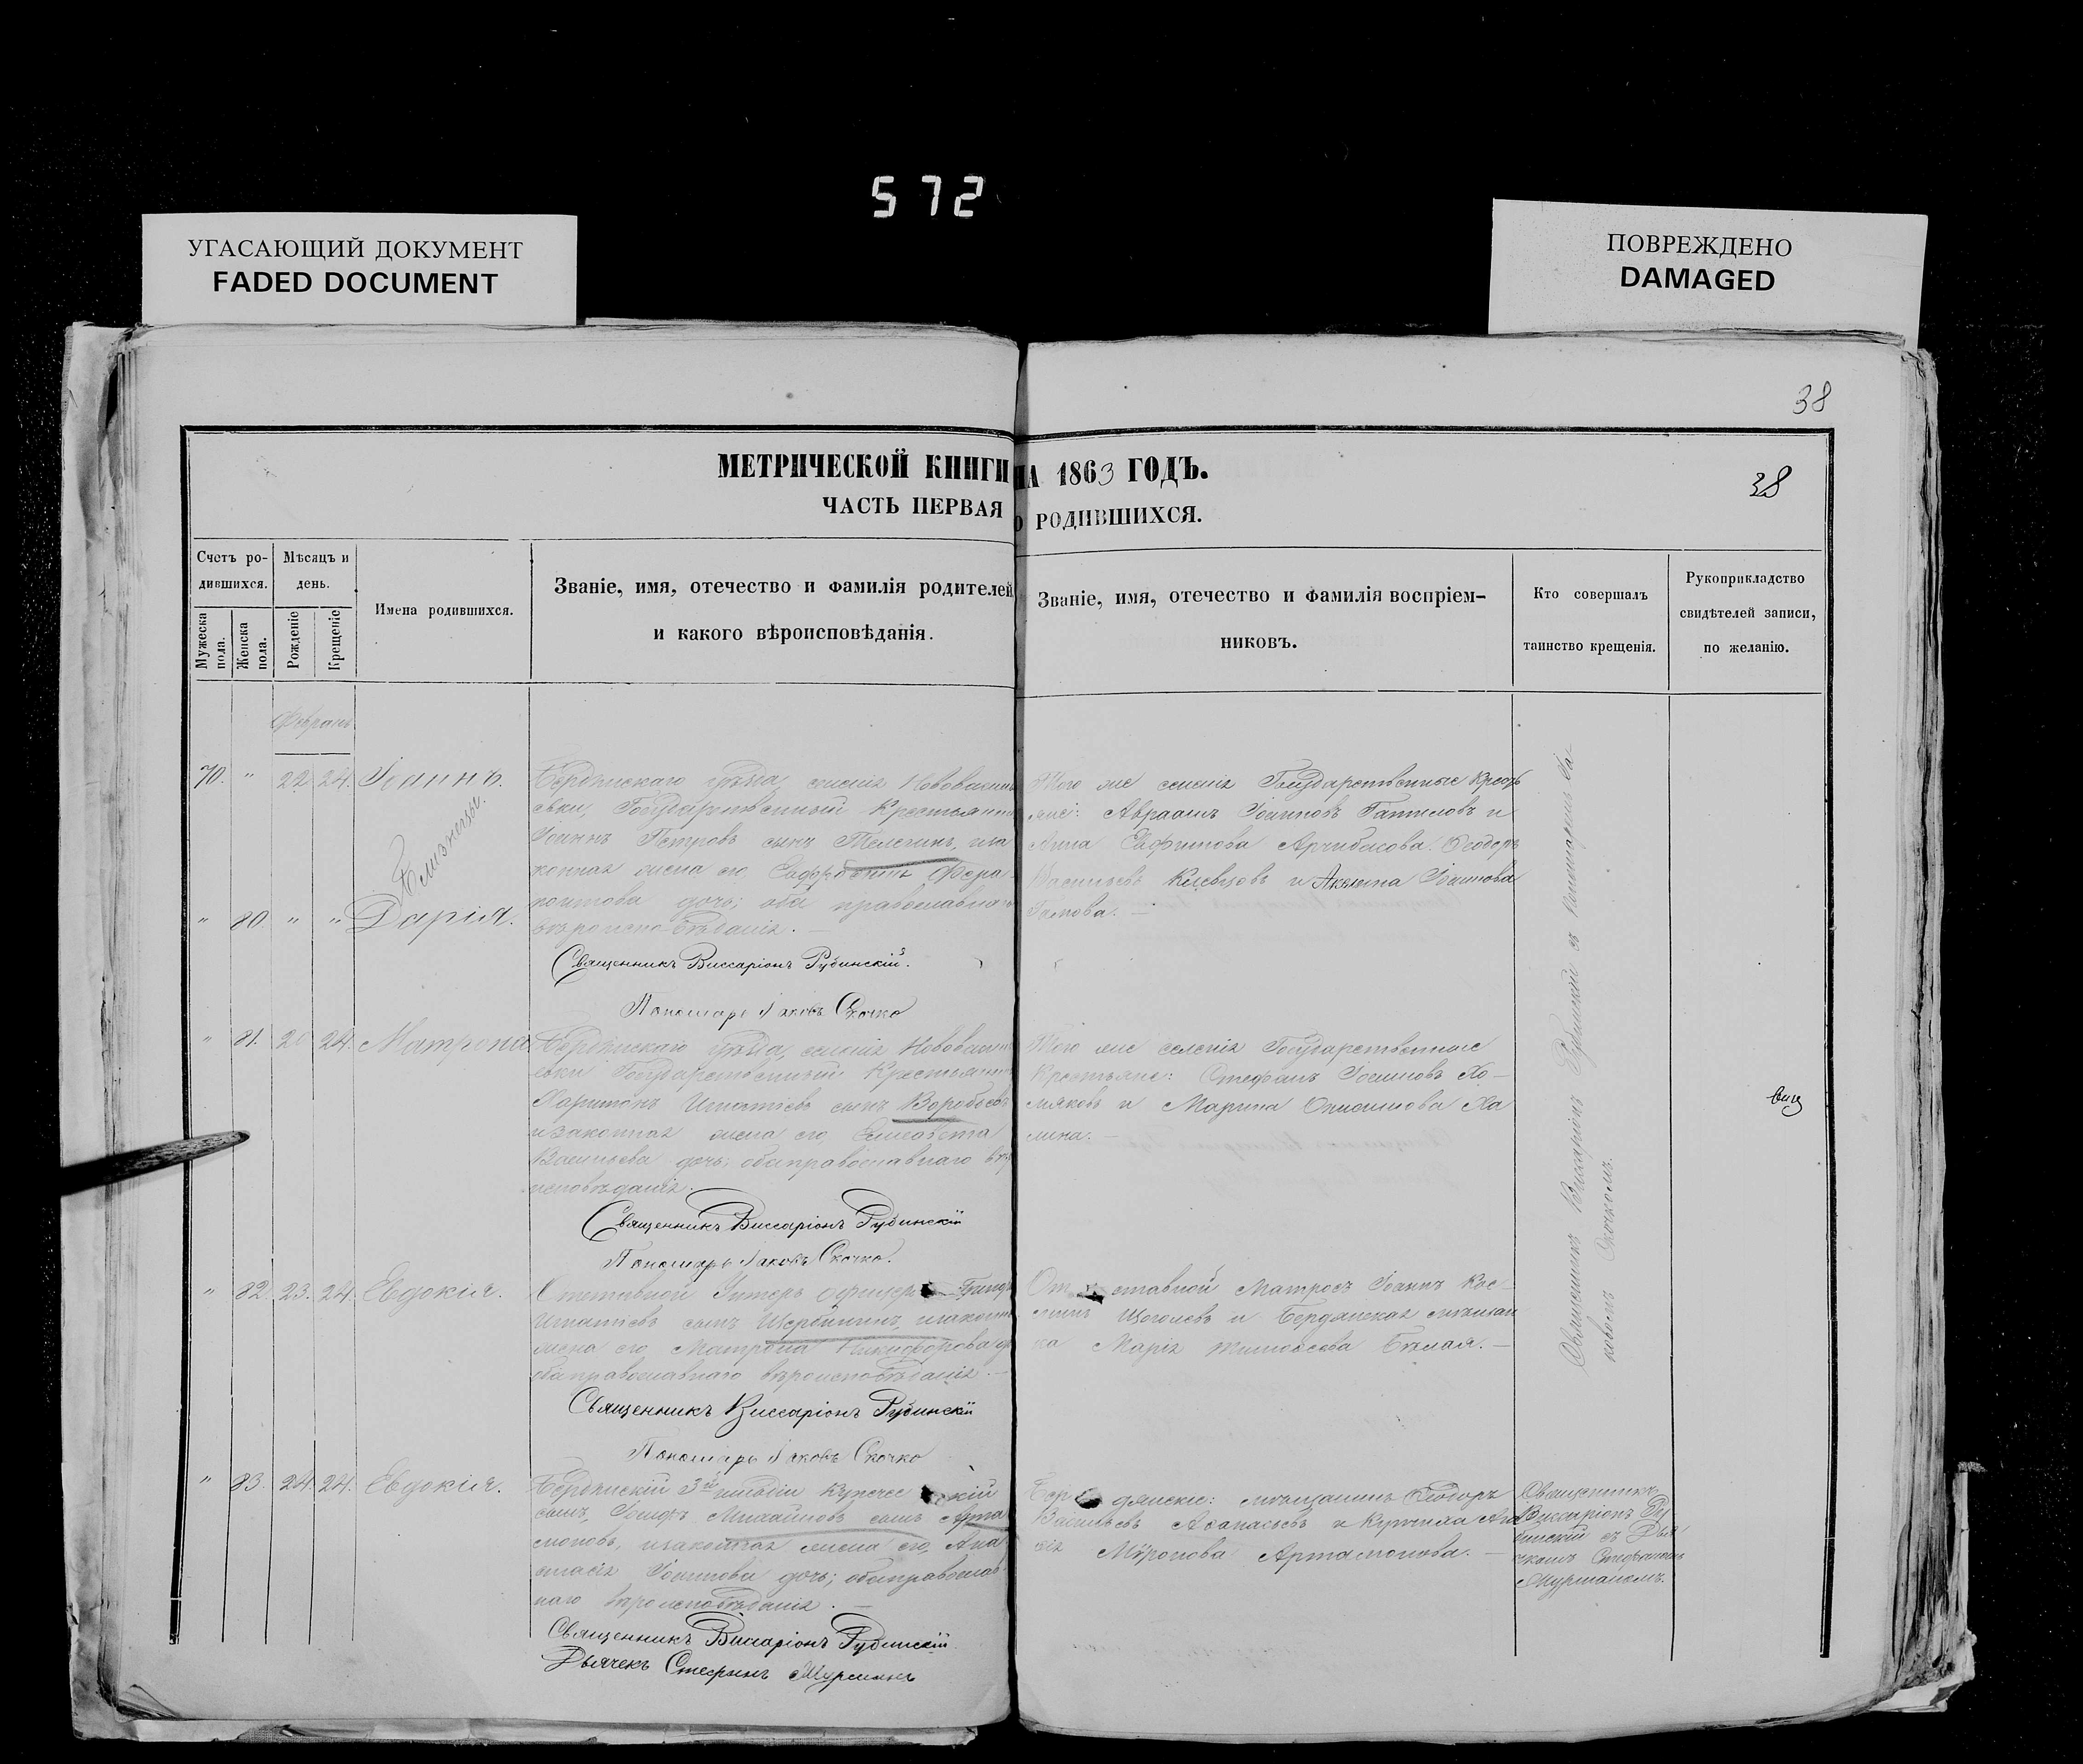 572
УГАСАЮЩИЙ ДОКУМЕНТ
FADED DOCUMENT
ПОВРЕЖДЕНО
DAMAGED
38
МЕТРИЧЕСКОЙ КНИГИ НА 1863 ГОДЪ.
38
ЧАСТЬ ПЕРВАЯ О РОДИВШИХСЯ.
Счетъ ро-
дившихся.
Мужеска
пола.
Женска
пола.
Мѣсяцъ и
день.
Рожденіе
Крещеніе
Имена родившихся.
Званіе, имя, отечество и фамилія родителей
и какого вѣроисповѣданія.
Званіе, имя, отечество и фамилія воспріем-
никовъ.
Кто совершалъ
таинство крещенія.
Рукоприкладство
свидѣтелей записи,
по желанію.
70. " 22 24. Іоаннъ.
Близнецы.
" 80 " " Дарія.
Бердянскаго уѣзда, селенія
Государственный Крестьянинъ
Іоаннъ Петровъ сынъ
жена его
дочь; оба православнаго
вѣроисповѣданія.
Священникъ Виссаріонъ Рубинскій.
Пономарь Іаковъ Скочко
Того же селенія Государственные Кресть
яне: Авраамъ Іоанновъ и
Анна Евфимова Ѳеодоръ
Васильевъ и Акилина Іоаннова
" 81. 20 24. Матрона
Бердянскаго уѣзда, селенія
Государственный Крестьянинъ
Харитонъ Игнатіевъ сынъ Воробьевъ
и законная жена его Елисавета
Васильева дочь; оба православнаго вѣро
исповѣданія.
Священникъ Виссаріонъ Рубинскій
Пономарь Іаковъ Скочко.
Того же селенія Государственные
Крестьяне: Стефанъ Іоанновъ Хо-
мяковъ и Марина
" 82. 23. 24. Евдокія.
Отставной Унтеръ офицеръ
Игнатіевъ сынъ Щербининъ, и законная
жена его Матрона Никифорова
оба православнаго вѣроисповѣданія.
Священникъ Виссаріонъ Рубинскій
Пономарь Іаковъ Скочко
Отставной Матросъ Іоаннъ Кос-
минъ Щеголевъ и Бердянская мѣщан
ка Марія Тимоѳеева Бѣлая.
" 83. 24. 24. Евдокія.
Бердянскій 3й гильдіи Купеческій
сынъ, Іосифъ Михайловъ сынъ Арта
моновъ, и законная жена его, Ана
стасія Іоаннова дочь; оба православ
наго вѣроисповѣданія.
Священникъ Виссаріонъ Рубинскій
Дьячекъ Стефанъ Мурманъ
Бердянскіе: мѣщанинъ Ѳеодоръ
Васильевъ Аѳанасьевъ и Купчиха
Мѵронова Артамонова.
Священникъ Виссаріонъ Рубинскій съ Пономаремъ Іа-
ковомъ Скочкомъ.
Священникъ
Виссаріонъ Ру
бинскій съ Дья
чкомъ Стефаномъ
Мурманомъ.